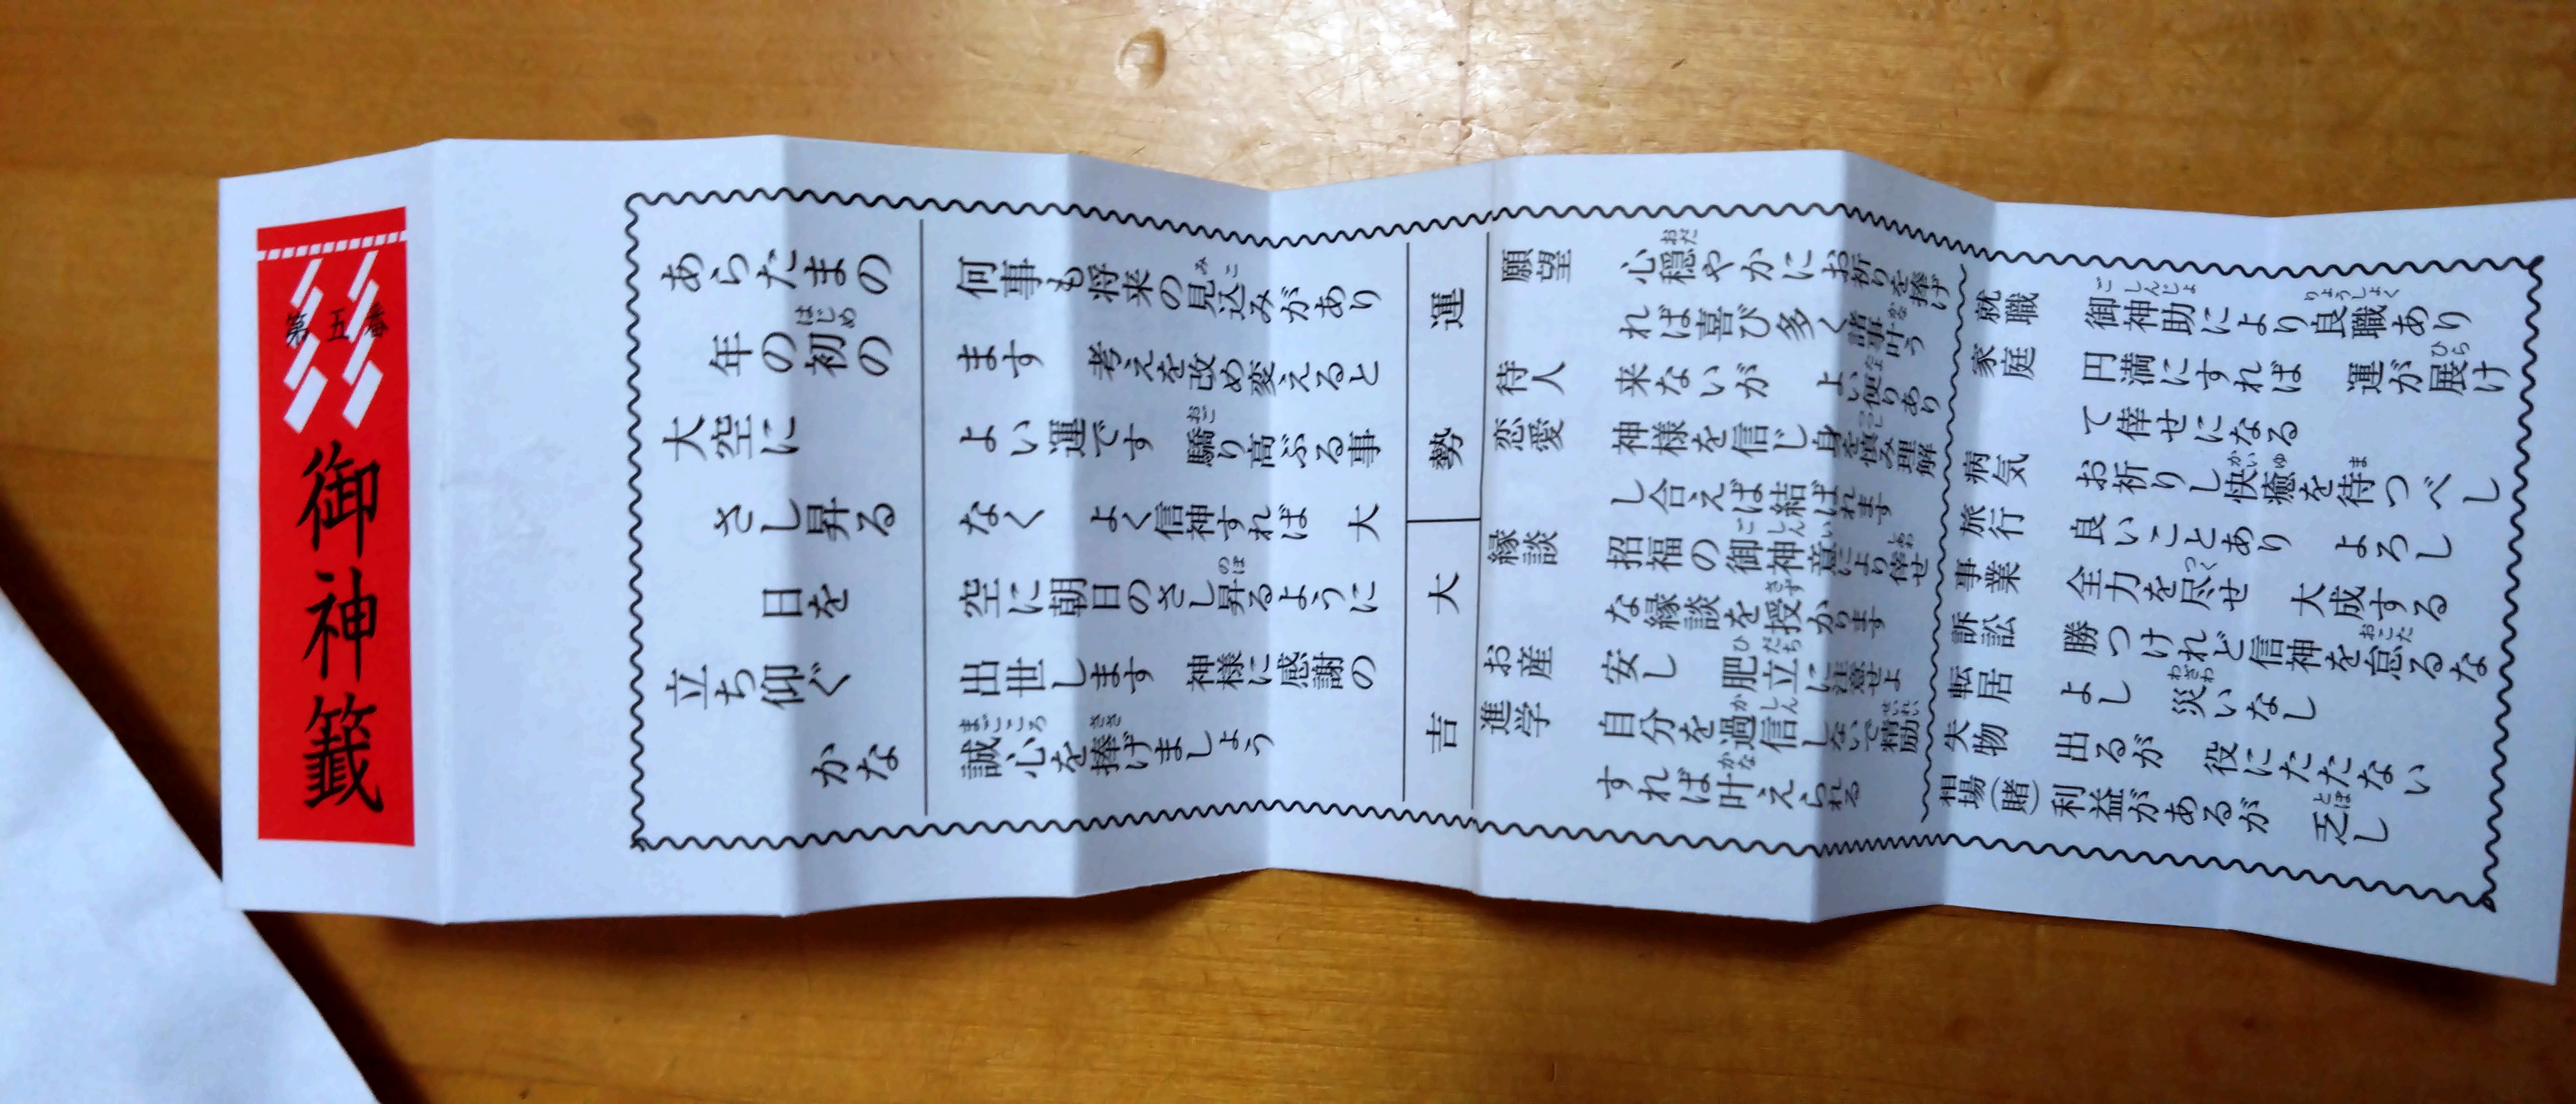 第五番
御神籤
あらたまの
年の初の
大空に
さし昇る
日を
立ち仰ぐ
かな
何事も将来の見込みがあり
ます 考えを改め変えると
よい運です 驕り高ぶる事
なく よく信神すれば 大
空に朝日のさし昇るように
出世します 神様に感謝の
誠心を捧げましょう
運勢 大吉
願望 心穏やかにお祈りを捧げ
れば喜び多く諸事叶う
待人 来ないが よい便りあり
恋愛 神様を信じ身を慎み理解
し合えば結ばれます
縁談 招福の御神意により倖せ
な縁談を授かります
お産 安し 肥立に注意せよ
進学 自分を過信しないで精励
すれば叶えられる
就職 御神助により良職あり
家庭 円満にすれば 運が展け
て倖せになる
病気 お祈りし快癒を待つべし
旅行 良いことあり よろし
事業 全力を尽せ 大成する
訴訟 勝つけれど信神を怠るな
転居 よし 災いなし
失物 出るが 役にたたない
相場(賭) 利益があるが 乏し